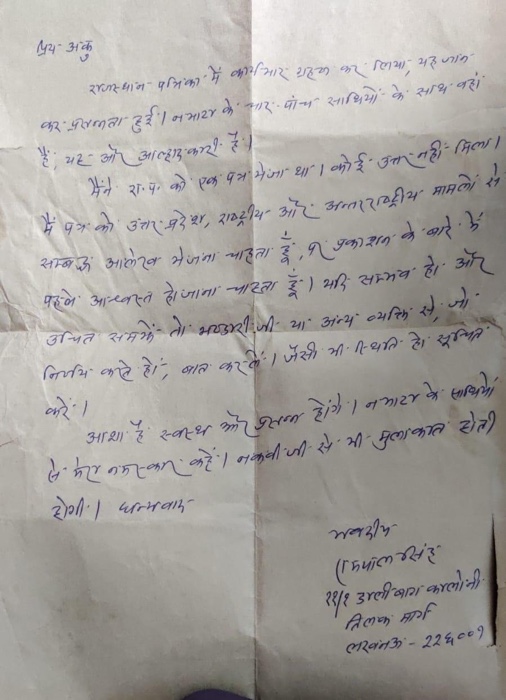 प्रिय अंकु
राजस्थान पत्रिका में कार्यभार ग्रहण कर लिया, यह जान
कर प्रसन्नता हुई। नभाटा के चार-पांच साथियों के साथ वहां
हैं, यह और आल्हादकारी है।
मैंने रा.प. को एक पत्र भेजा था। कोई उत्तर नहीं मिला।
मैं पत्र को उत्तर प्रदेश, राष्ट्रीय और अन्तरराष्ट्रीय मामलों से
सम्बद्ध आलेख भेजना चाहता हूं, पर प्रकाशन के बारे में
पहले आश्वस्त होजाना चाहता हूं। यदि सम्भव हो और
उचित समझें तो भण्डारी जी या अन्य व्यक्ति से, जो
निर्णय करते हों, बात करलें। जैसी भी स्थिति हो सूचित
करें।
आशा है स्वस्थ और प्रसन्न होंगे। नभाटा के साथियों
से मेरा नमस्कार कहें। नकवी जी से भी मुलाकात होती
होगी। धन्यवाद
भवदीय
सिंह
११/१ डालीबाग कालोनी
तिलक मार्ग
लखनऊ - २२६००१